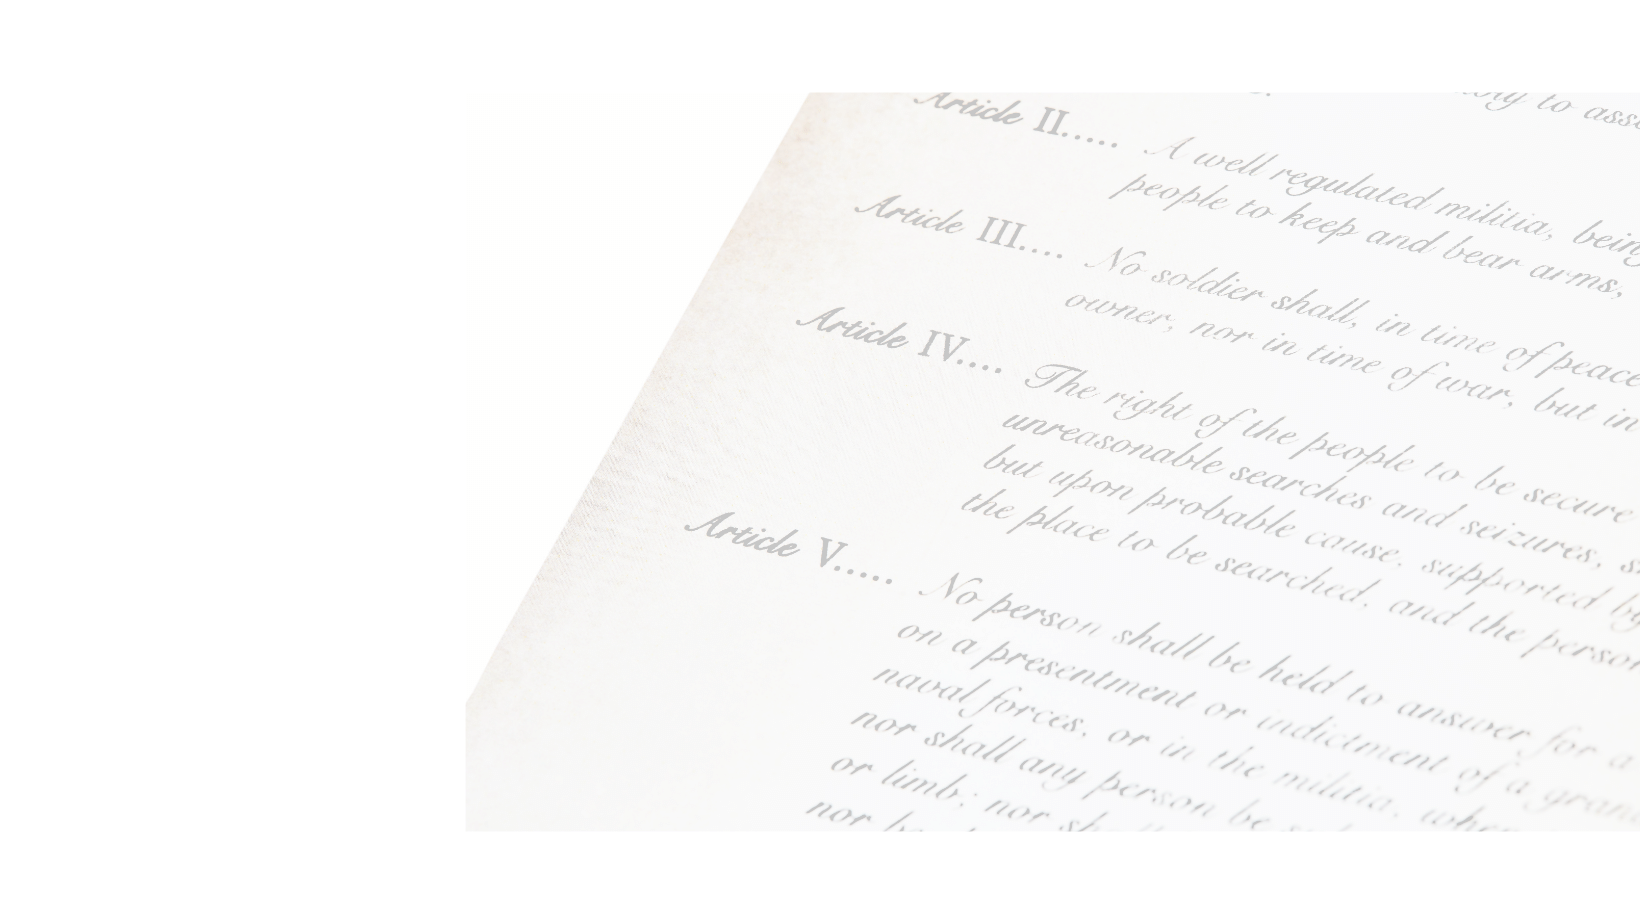 any to
Article II..... A well regulated militia, being
people to keep and bear arms,
Article III.... No soldier shall, in time of peace
owner, nor in time of war, but in
Article IV.... The right of the people to be secure
unreasonable searches and seizures,
but upon probable cause, supported by
the place to be searched, and the person
Article V..... No person shall be held to answer for a
on a presentment or indictment of a grand
naval forces, or in the militia, when
nor shall any person be
or limb; nor
nor